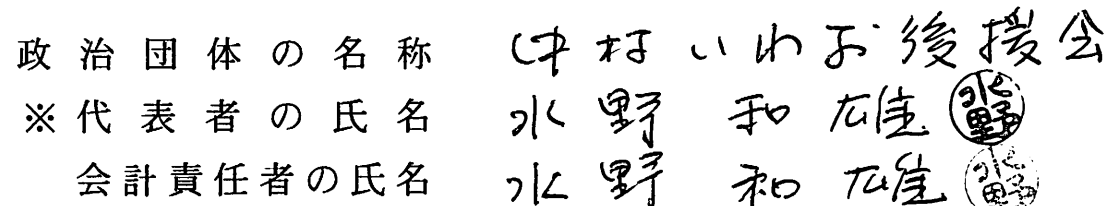 政治団体の名称 中村いわお後援会
※代表者の氏名 水野 和雄 水野
会計責任者の氏名 水野 和雄 水野